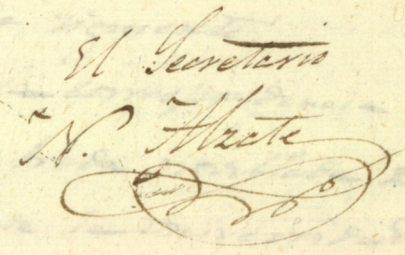 El Secretario
N. Alzate